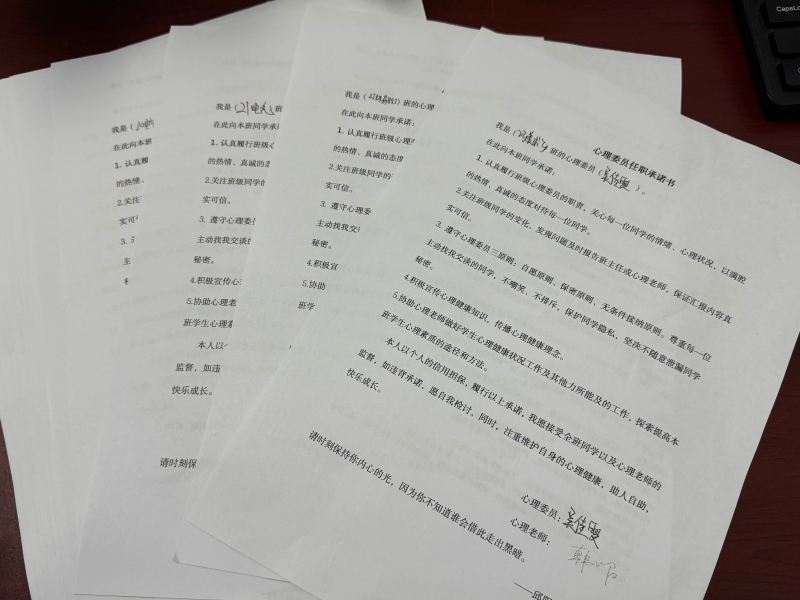 心理委员任职承诺书
我是（ 班的心理委员（ ）。
在此向本班同学承诺：
1. 认真履行班级心理委员的职责，关心每一位同学的情绪、心理状况，以满腔
的热情、真诚的态度对待每一位同学。
2.关注班级同学的变化，发现问题及时报告班主任或心理老师，保证汇报内容真
实可信。
3. 遵守心理委员三原则：自愿原则、保密原则、无条件接纳原则。尊重每一位
主动找我交谈的同学，不嘲笑、不排斥，保护同学隐私，坚决不随意泄漏同学
秘密。
4.积极宣传心理健康知识，传播心理健康理念。
5.协助心理老师做好学生心理健康状况工作及其他力所能及的工作，探索提高本
班学生心理素质的途径和方法。
本人以个人的信用担保，履行以上承诺，我愿接受全班同学以及心理老师的
监督，如违背承诺，愿自我检讨。同时，注重维护自身的心理健康，助人自助，
快乐成长。
心理委员：
心理老师：
请时刻保持你内心的光，因为你不知道谁会借此走出黑暗。
我是（ 班的心理
在此向本班同学承诺：
1. 认真履行班级心理
的热情、真诚的态度
2.关注班级同学的
实可信。
3. 遵守心理委
主动找我交
秘密。
4.积极宣
5.协助
班学
我是（21电 ）班
在此向本班同学承
1. 认真履行班级
的热情、真诚
2.关注班级同学
实可信。
3. 遵守心理委
主动找我交谈的
秘密。
4.积极宣传心
5.协助心理老
班学生心理素
本人以
监督，如违
快乐成长。
请时刻保
我是（
在此向本
1. 认真履
的热情、
2.关注
实可
3.
主